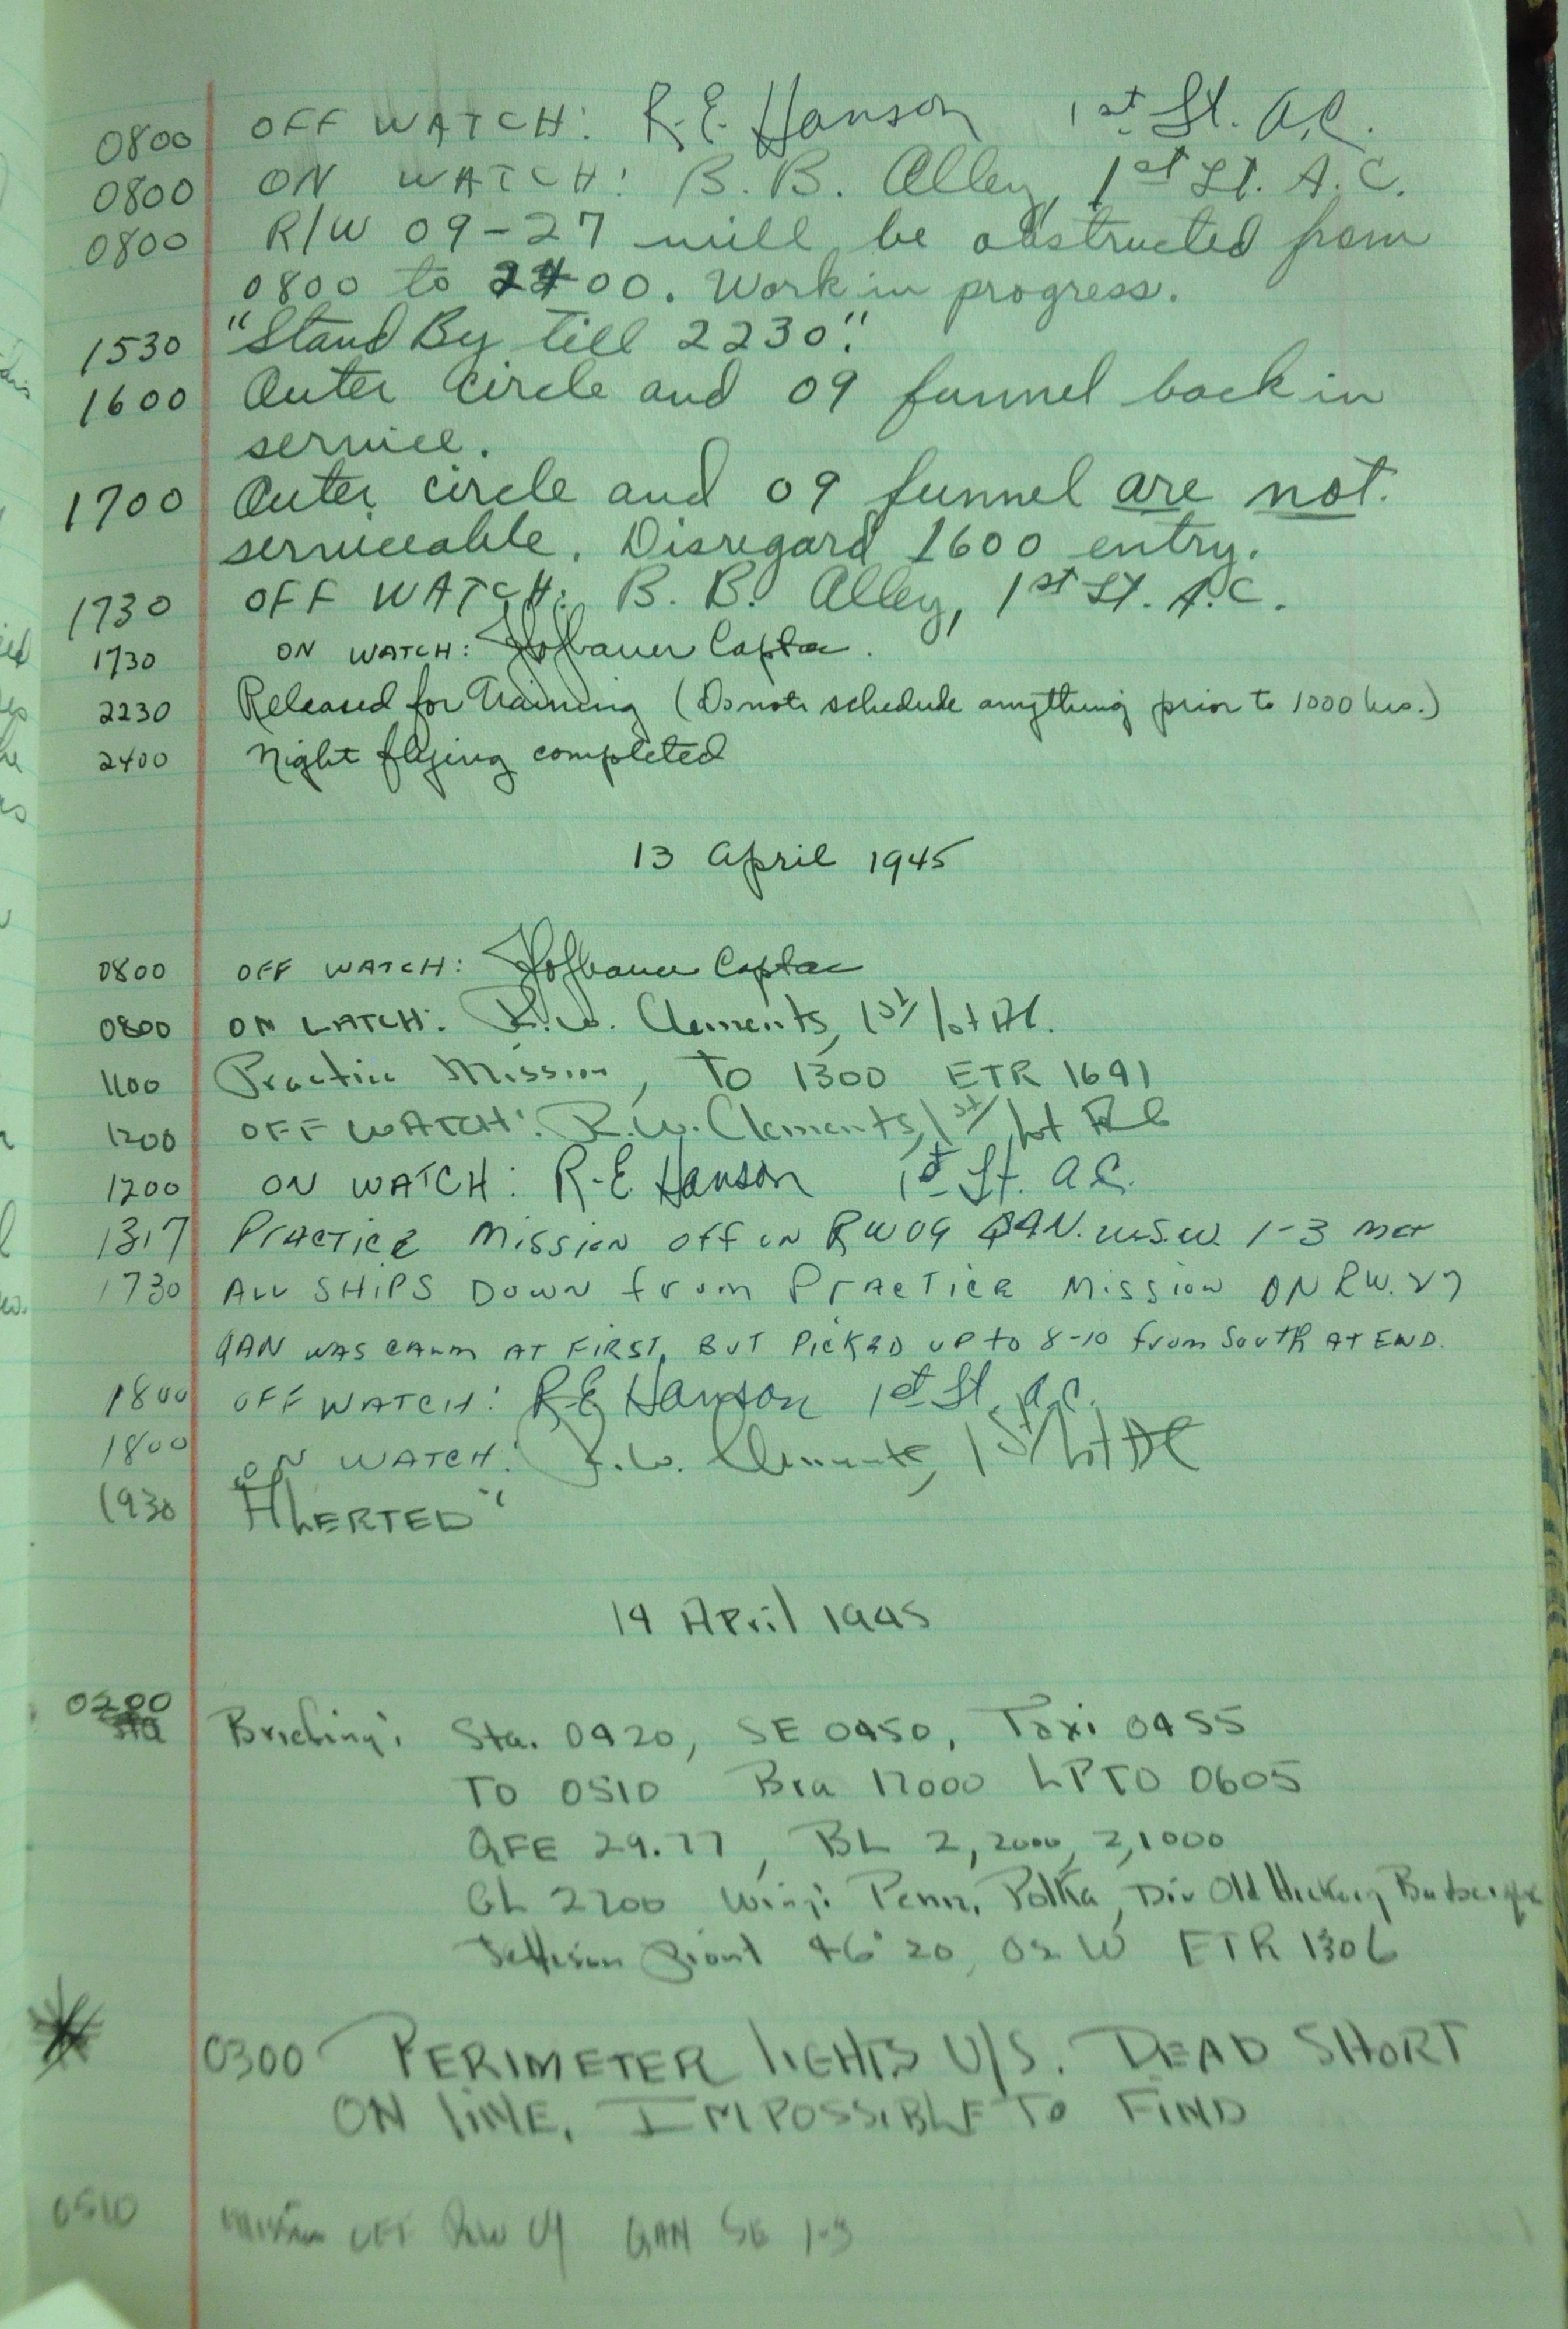 0800 OFF WATCH: R.E. Hanson 1st Lt. A.C.
0800 ON WATCH: B. B. Alley, 1st Lt. A.C.
0800 R/W 09-27 will be obstructed from
0800 to 2400. Work in progress.
1530 "Stand By till 2230".
1600 Outer circle and 09 funnel back in
service.
1700 Outer circle and 09 funnel are not
serviceable. Disregard 1600 entry.
1730 OFF WATCH: B. B. Alley, 1st Lt. A.C.
1730 ON WATCH: Hofbauer Capt ac.
2230 Released for Training (Do not schedule anything prior to 1000 hrs.)
2400 Night flying completed
13 April 1945
0800 OFF WATCH: Hofbauer Capt ac
0800 ON WATCH: R.W. Clements, 1st/Lot AC.
1100 Practice Mission, TO 1300 ETR 1641
1200 OFF WATCH: R.W. Clements, 1st/Lot AC
1200 ON WATCH: R.E. Hanson 1st Lt. A.C.
1317 Practice Mission off on RW 09 QAN. W.S.W. 1-3
1730 ALL SHIPS DOWN from Practice Mission ON RW. 27
QAN WAS CALM AT FIRST, BUT PICKED UP to 8-10 from South AT END.
1800 OFF WATCH: R.E. Hanson 1st Lt. A.C.
1800 ON WATCH: R.W. Clements, 1st/Lot AC
1930 "ALERTED"
14 April 1945
0200 Briefing: Sta. 0420, SE 0450, Taxi 0455
TO 0510 Bra 17000 LPTO 0605
QFE 29.77, BL 2, 2000, 2, 1000
GL 2200 Wing: Penn, Polka, Div Old Hickory
Jettison Point 46° 20, 02 W ETR 1306
0300 PERIMETER LIGHTS U/S. DEAD SHORT
ON LINE, IMPOSSIBLE TO FIND
0510 Mission OFF RW 09 QAN SE 1-3